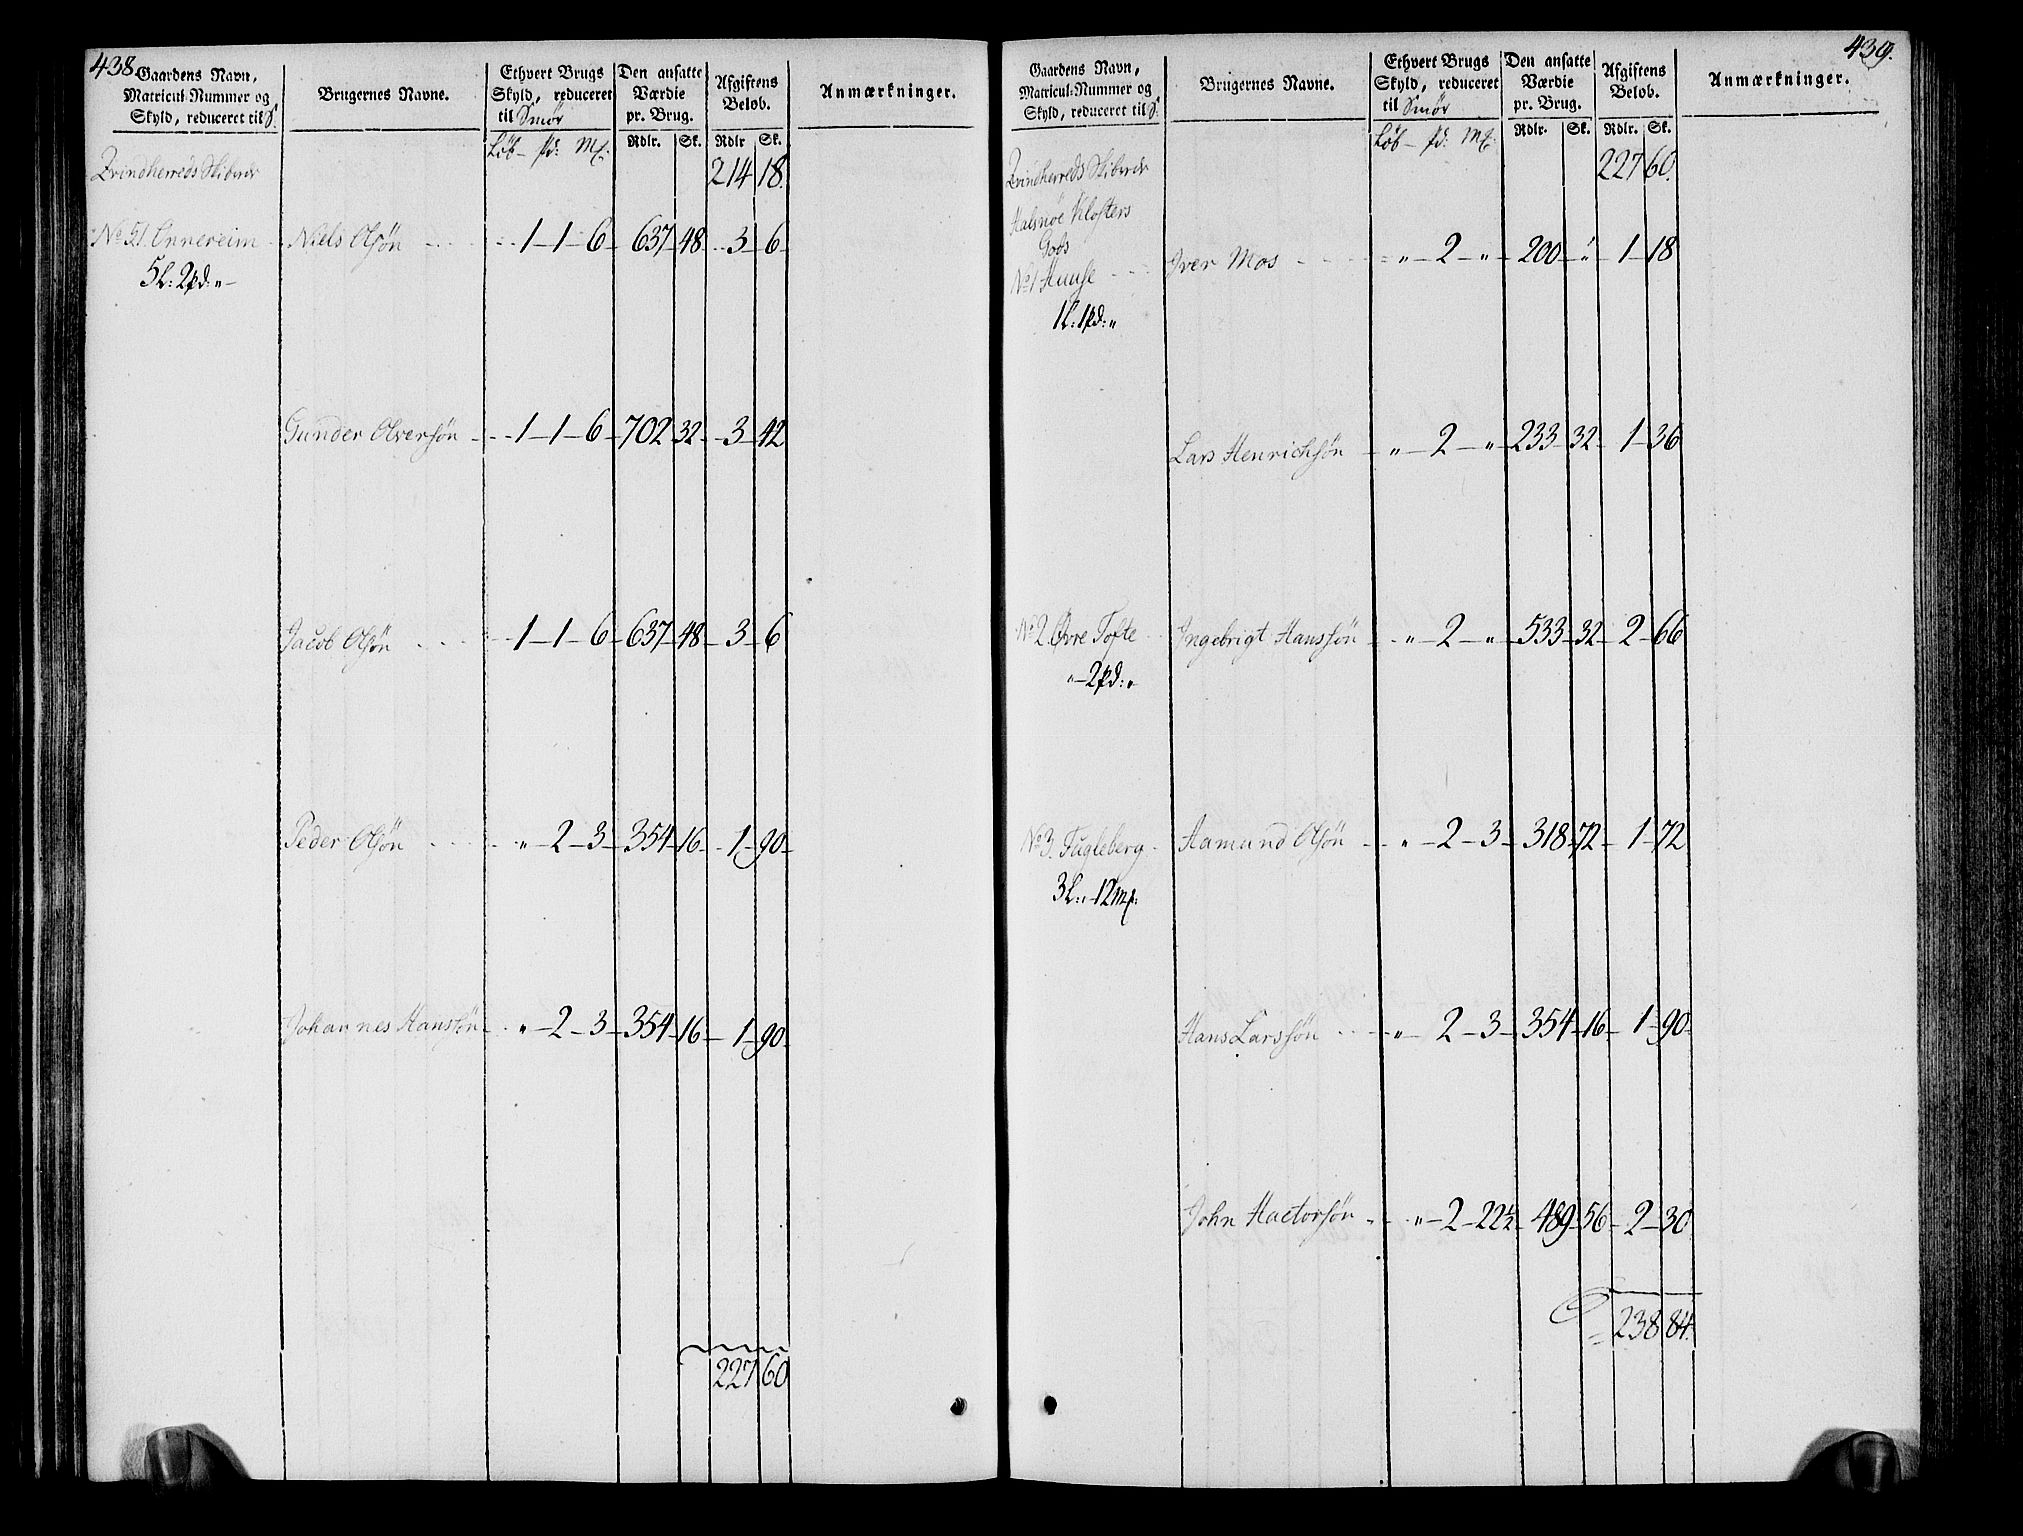 438.
Gaardens Navn,
Matricul-Nummer og
Skyld, reduceret til S.
Brugernes Navne.
Ethvert Brugs
Skyld, reduceret
til Smör
Den ansatte
Værdie
pr. Brug.
Afgiftens
Beløb.
Anmærkninger.
Löb – pd: Mk.
Rdlr. Sk. Rdlr Sk.
Qvindherreds Skibrede 214 18.
No 51. Ennereim Niels Olsön 1–1–6 637 48 3 6
5L: 2pd: „
Gunder Olversön 1–1–6 702 32 3 42
Jacob Olsön 1–1–6 637 48 3 6
Peder Olsön „–2–3 354 16 1 90
Johannes Hanssön „–2–3 354 16 1 90
227 60
439.
Gaardens Navn,
Matricul-Nummer og
Skyld, reduceret til S.
Brugernes Navne.
Ethvert Brugs
Skyld, reduceret
til Smör
Den ansatte
Værdie
pr. Brug.
Afgiftens
Beløb.
Anmærkninger.
Löb – pd: Mk.
Rdlr. Sk. Rdlr. Sk.
Qvindherreds Skibrede 227 60.
Halsnöe Klosters
Gods
No 1 Hauge Iver Mos „–2–„ 200 „ 1 18
1L: 1pd: „
Lars Henrichsön „–2–„ 233 32 1 36
No 2 Øvre Tofte Ingebrigt Hanssön „–2–„ 533 32 2 66
„–2pd: „
No 3. Fugleberg Aamund Olsön „–2–3 318 72 1 72
3L: „–12mk:
Hans Larssön „–2–3 354 16 1 90
John Hactorsön „–2–22½ 489 56 2 30
238 84.